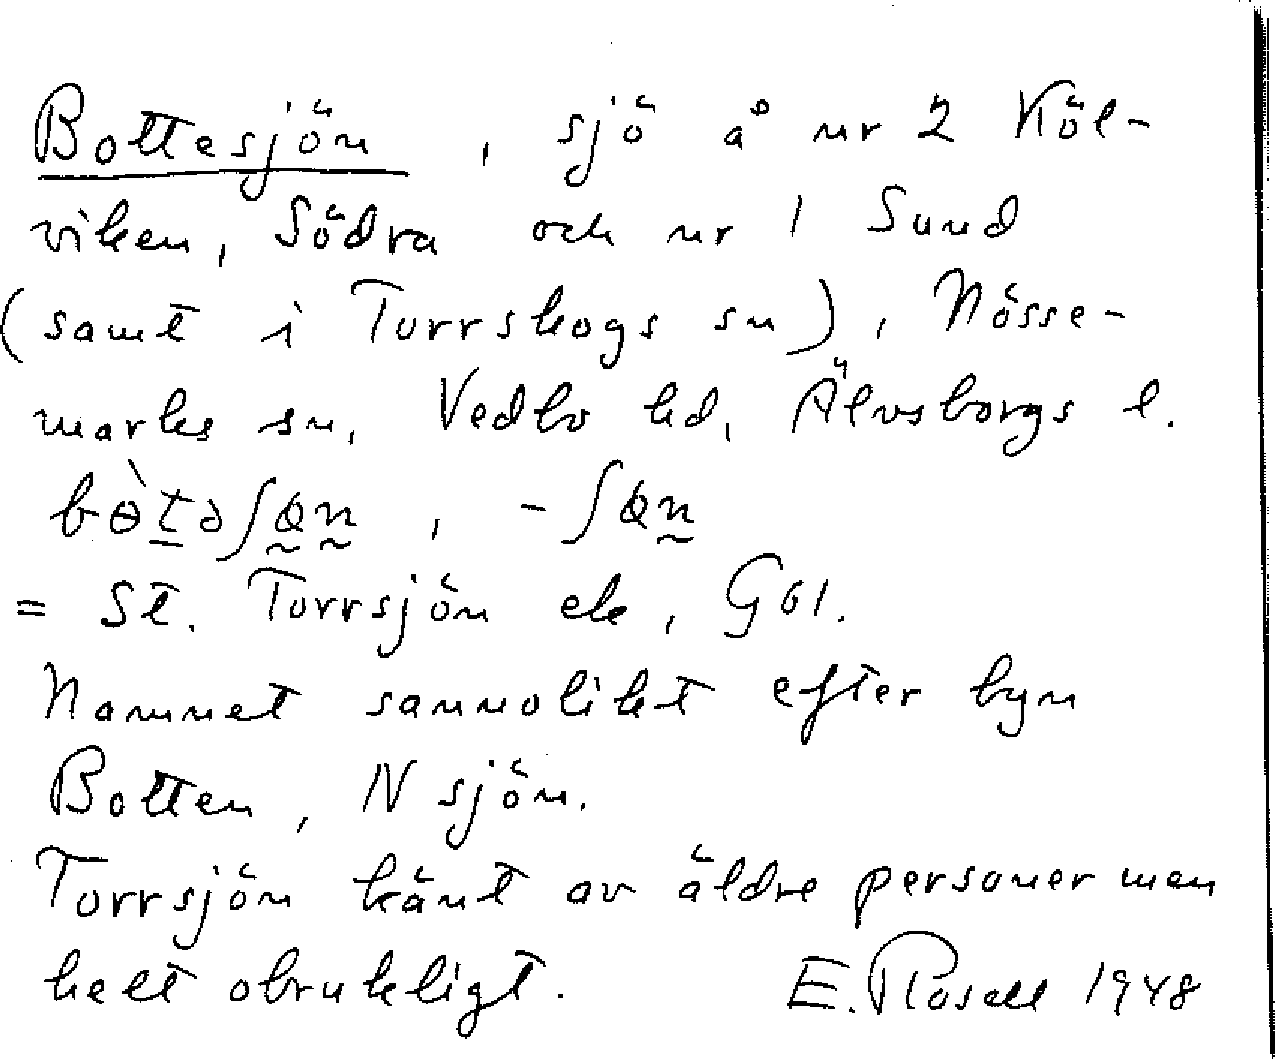 Bottesjön, sjö å nr 2 Köl-
viken, Södra och nr 1 Sund
(samt i Torrskogs sn), Nösse-
marks sn, Vedbo hd, Älvsborgs l.
bɵ̀t̲əʃɵ̰n̰, -ʃɵn̰
= St. Torrsjön ek, G61.
Namnet sannolikt efter byn
Botten, N sjön.
Torrsjön känt av äldre personer men
helt obrukligt. E. Rosell 1948